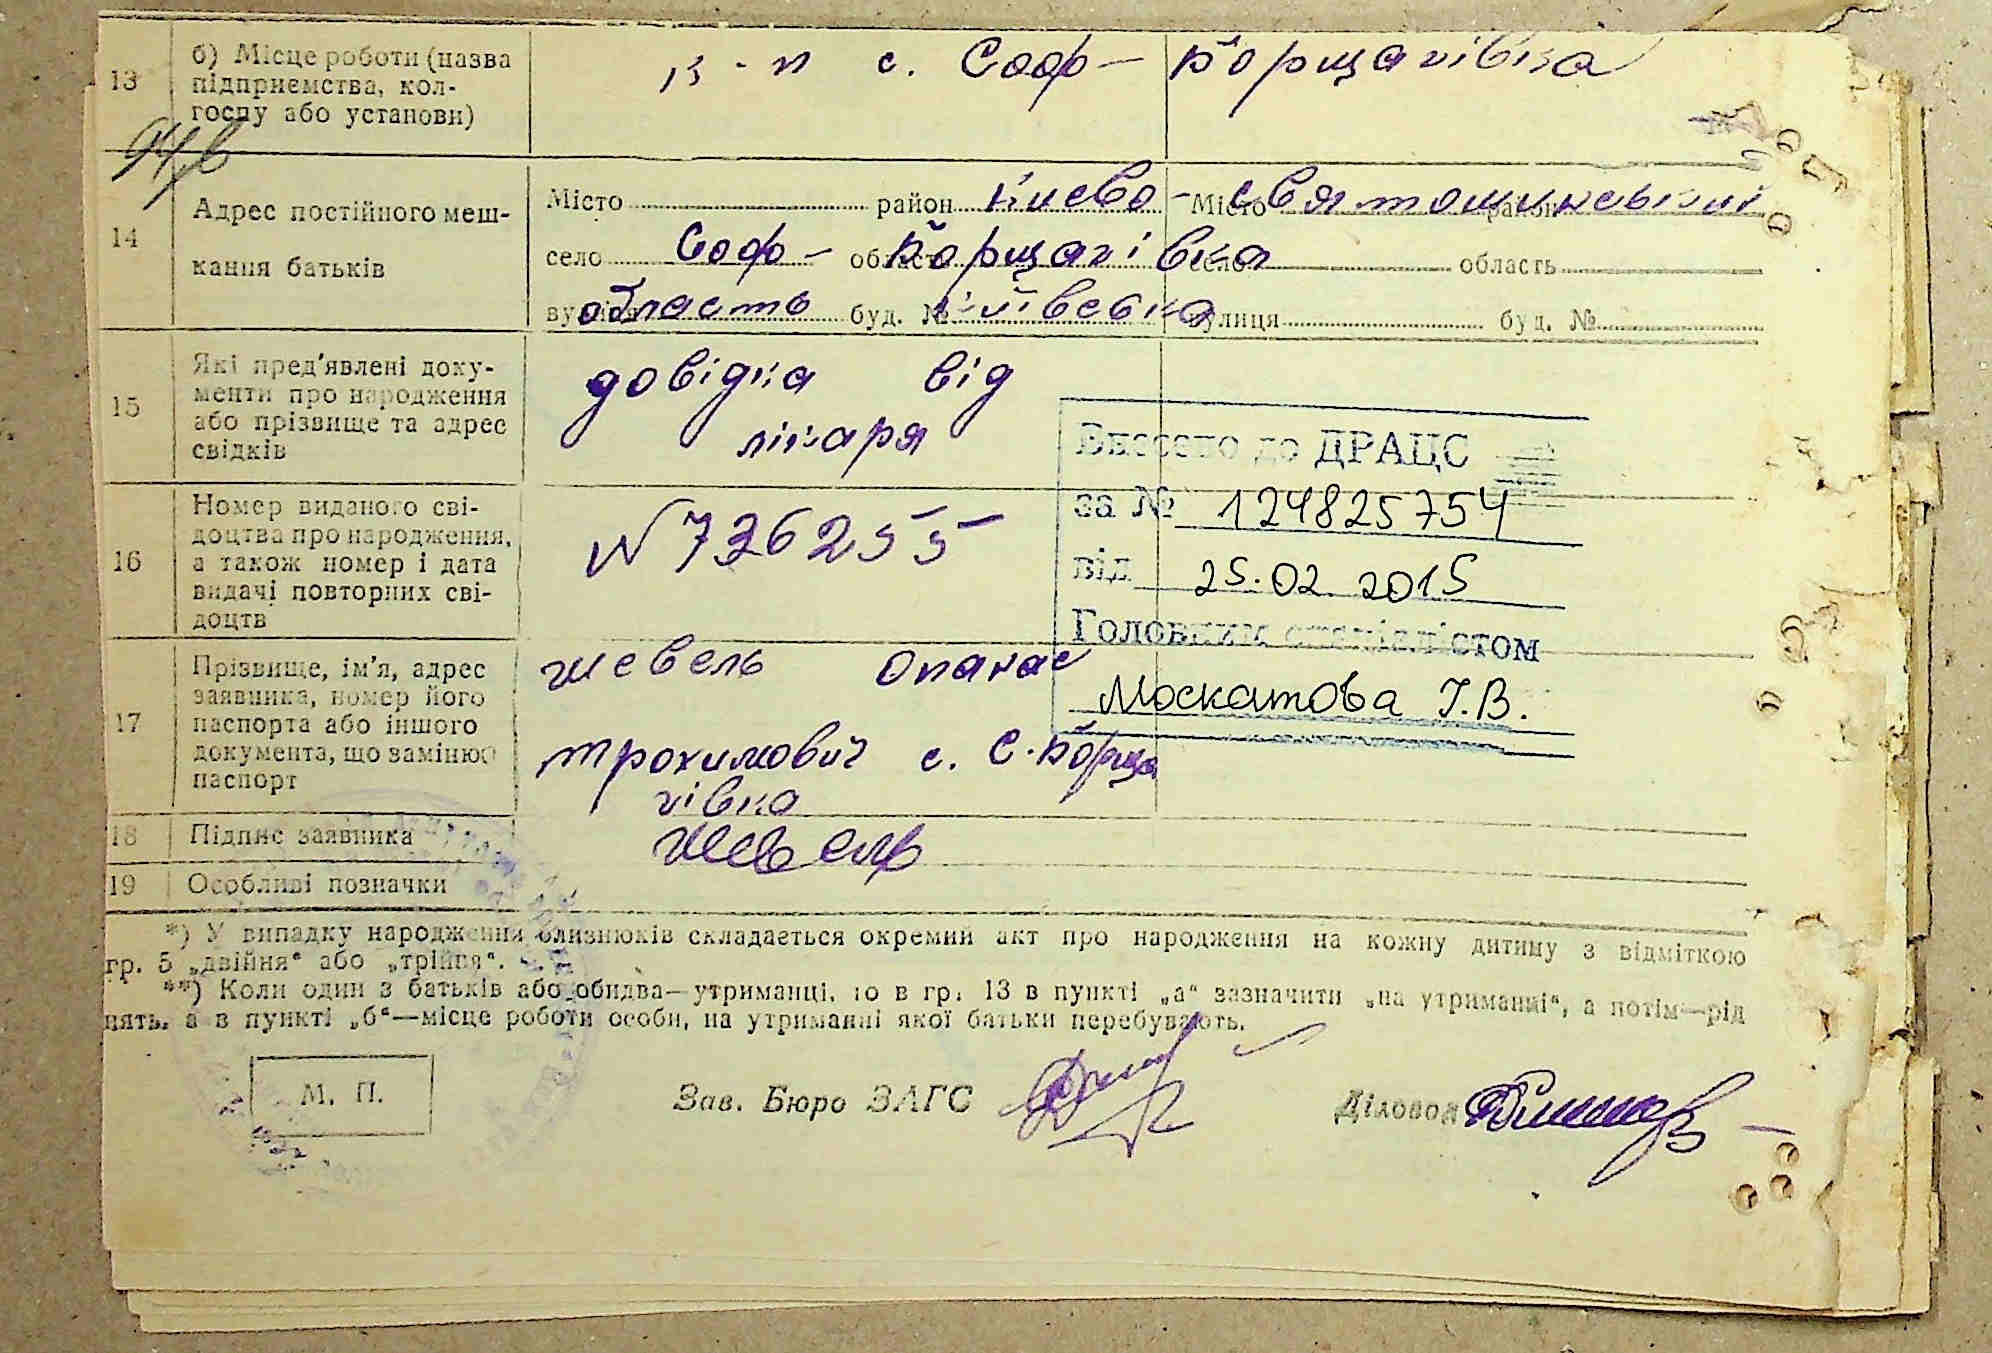 13
б) Місце роботи (назва
підприємства, кол-
госпу або установи)
к-п с. Соф- Борщагівка
14
Адрес постійного меш-
кання батьків
Місто район Києво-Святошинський Місто район
село Соф- Борщагівка область село область
вулиця область Київська буд. № вулиця буд. №
15
Які пред'явлені доку-
менти про народження
або прізвище та адрес
свідків
довідка від
лікаря
16
Номер виданого сві-
доцтва про народження,
а також номер і дата
видачі повторних сві-
доцтв
N 736255
Внесено до ДРАЦС
за № 124825754
від 25.02.2015
Головним спеціалістом
Москатова І.В.
17
Прізвище, ім'я, адрес
заявника, номер його
паспорта або іншого
документа, що замінює
паспорт
Шевель Опанас
Трохимович с. С-Борща
гівка
18 Підпис заявника
Шевель
19 Особливі позначки
*) У випадку народження близнюків складається окремий акт про народження на кожну дитину з відміткою
гр. 5 „двійня" або „трійня".
**) Коли один з батьків або обидва—утриманці, то в гр. 13 в пункті „а" зазначити „на утриманні", а потім—рід
нять, а в пункті „б"—місце роботи особи, на утриманні якої батьки перебувають.
М. П.
Зав. Бюро ЗАГС
Діловод